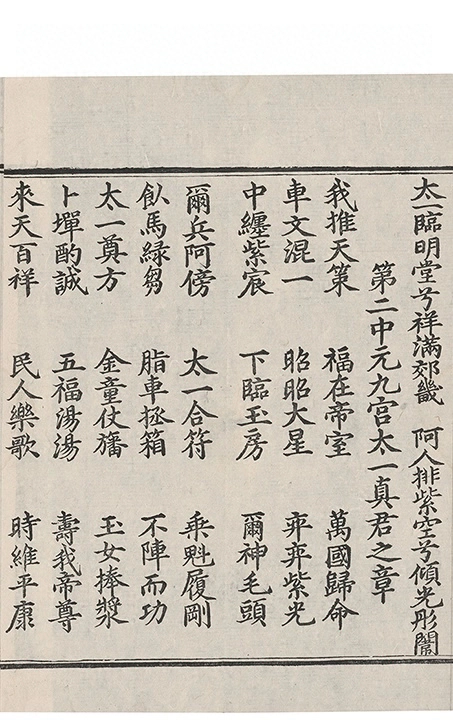 太一臨明堂兮祥滿郊畿　阿人排紫空兮傾光彤闈
第二中元九宮太一真君之章
我推天策　福在帝室　萬國歸命
車文混一　昭昭大星　弈弈紫光
中纏紫宸　下臨玉房　爾神毛頭
爾兵阿傍　太一合符　乘魁履剛
飲馬綠蒭　脂車拯箱　不陣而功
太一奠方　金童仗旛　玉女捧漿
卜墠酌誠　五福湯湯　壽我帝尊
來天百祥　民人樂歌　時維平康